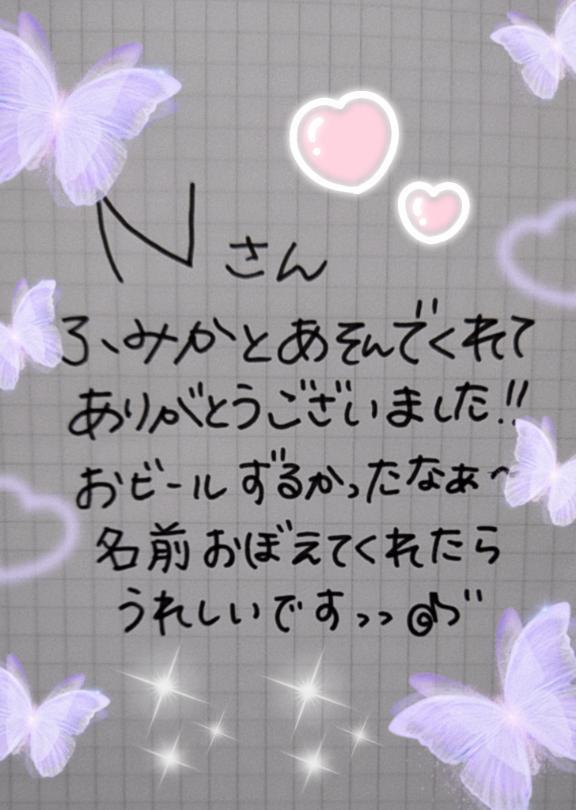 Nさん
ふみかとあそんでくれて
ありがとうございました!!
おビールずるかったなぁ〜
名前おぼえてくれたら
うれしいですっっ